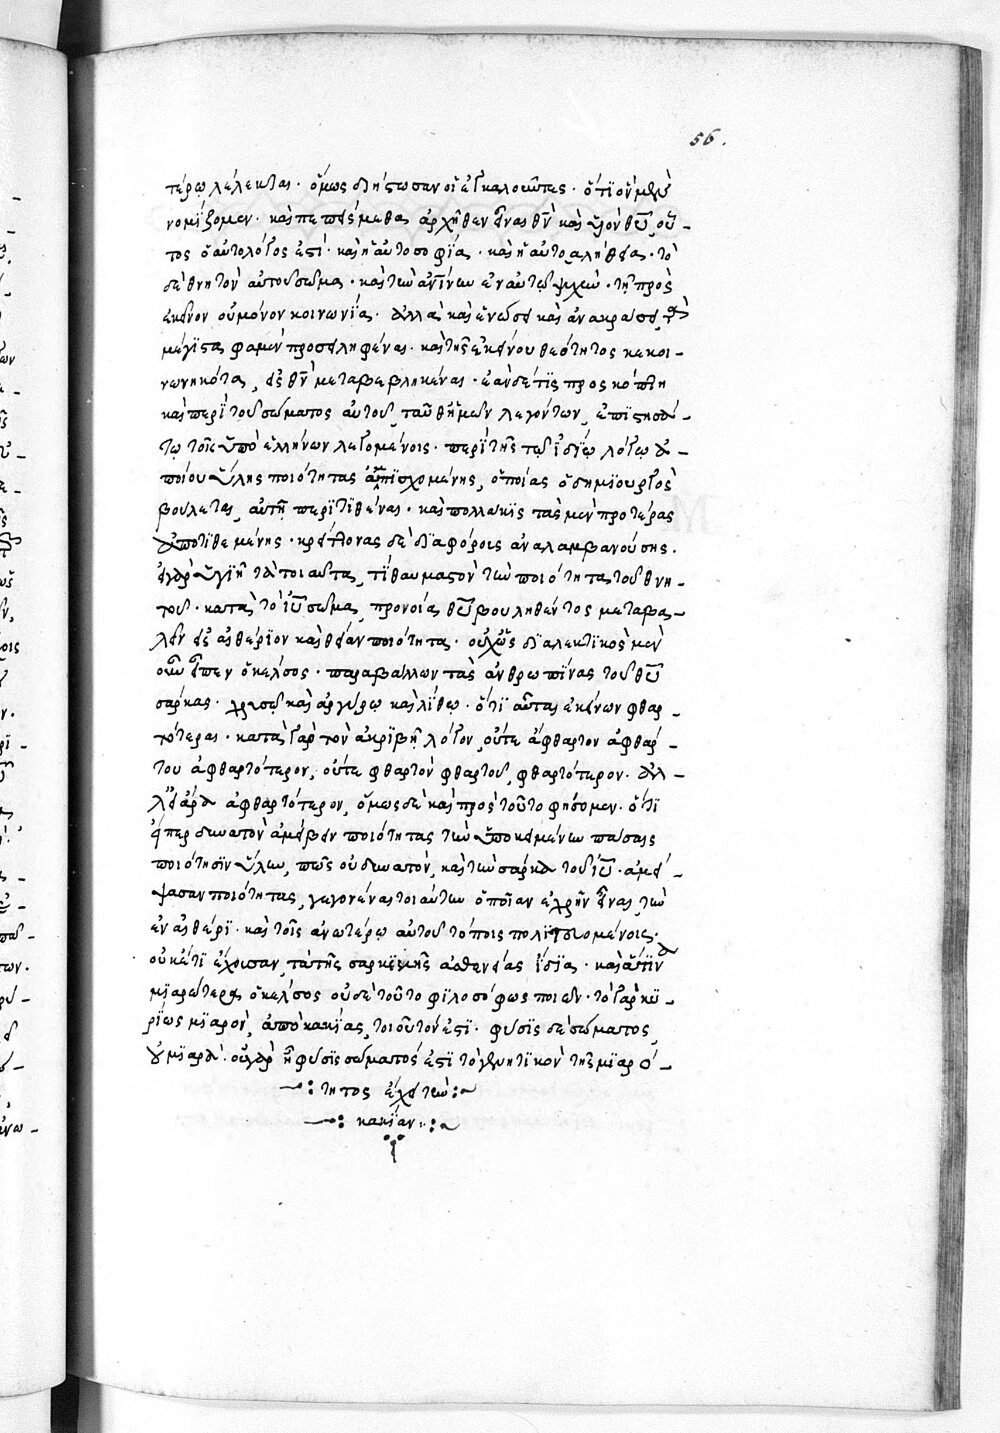 τέρω λέλεκται· ὅμως δὲ ἴστωσαν οἱ ἐγκαλοῦντες· ὅτι ὃν μὲν
νομίζομεν· καὶ πεπείσμεθα ἀρχῆθεν εἶναι θν̄ καὶ υἱὸν θῡ, οὗ-
τος ὁ αὐτολόγος ἐστί· καὶ ἡ αὐτοσοφία· καὶ ἡ αὐτοαλήθεια· τὸ
δὲ θνητὸν αὐτοῦ σῶμα· καὶ τὴν ἀνίνην ἐν αὐτῷ ψυχὴν· τῇ πρὸς
ἐκεῖνον οὐ μόνον κοινωνίᾳ· ἀλλὰ καὶ ἑνώσει καὶ ἀνακράσει, τὰ
μέγιστα φαμὲν προσειληφέναι· καὶ τῆς ἐκείνου θεότητος κεκοι-
νωνηκότα, εἰς θν̄ μεταβεβληκέναι· ἐὰν δέ τις προσκόπτῃ
καὶ περὶ τοῦ σώματος αὐτοῦ, ταῦθ' ἡμῶν λεγόντων, ἐπιστησά-
τω τοῖς ὑπὸ ἑλλήνων λεγομένοις· περὶ τῆς τῷ ἰδίῳ λόγῳ ἀ-
ποίου ὕλης ποιότητας ἀμπισχομένης, ὁποίας ὁ δημιουργὸς
βούλεται, αὐτῇ περιτιθέναι· καὶ πολλάκις τὰς μὲν προτέρας
ἀποτιθεμένης· κρείττονας δὲ διαφόροις ἀναλαμβανούσης.
εἰ γὰρ ὑγιῆ τὰ τοιαῦτα, τί θαυμαστὸν τὴν ποιότητα τοῦ θνη-
τοῦ· κατὰ τὸ ιῡ σῶμα, προνοίᾳ θῡ βουληθέντος μεταβα-
λεῖν εἰς αἰθέριον καὶ θείαν ποιότητα· οὐχ ὡς διαλεκτικὸς μὲν
οὖν εἶπεν ὁ κέλσος· παραβάλλων τὰς ἀνθρωπίνας τοῦ ιῡ
σάρκας· χρυσῷ καὶ ἀργύρῳ καὶ λίθῳ· ὅτι αὗται ἐκείνων φθαρ-
τότεραι· κατὰ γὰρ τὸν ἀκριβῆ λόγον, οὔτε ἄφθαρτον ἀφθάρ-
του ἀφθαρτότερον, οὔτε φθαρτὸν φθαρτοῦ, φθαρτότερον. ἀλ-
λ' εἰ ἄρα ἀφθαρτότερον, ὅμως δὲ καὶ πρὸς τοῦτο φήσομεν· ὅτι
εἴπερ δυνατὸν ἀμείβειν ποιότητας τὴν ὑποκειμένην πάσαις
ποιότησιν ὕλην, πῶς οὐ δυνατὸν, καὶ τὴν σάρκα τοῦ ιῡ· ἀμεί-
ψασαν ποιότητας, γεγονέναι τοιαύτην ὁποίαν ἐχρῆν εἶναι, τὴν
ἐν αἰθέρι· καὶ τοῖς ἀνωτέρω αὐτοῦ τόποις πολιτευομένοις·
οὐκέτι ἔχουσαν, τὰ τῆς σαρκικῆς ἀσθενείας ἴδια· καὶ ἅτινα
μιαρώτερα ὁ κέλσος οὐδὲ τοῦτο φιλοσόφως ποιῶν· τὸ γὰρ κυ-
ρίως μιαρὸν, ἀπὸ κακίας, τοιοῦτόν ἐστι· φύσις δὲ σώματος,
οὐ μιαρά· οὐ γὰρ ᾗ φύσις σώματός ἐστι τὸ γεννητικὸν τῆς μιαρό-
τητος ἔχει τὴν
κακίαν
56.